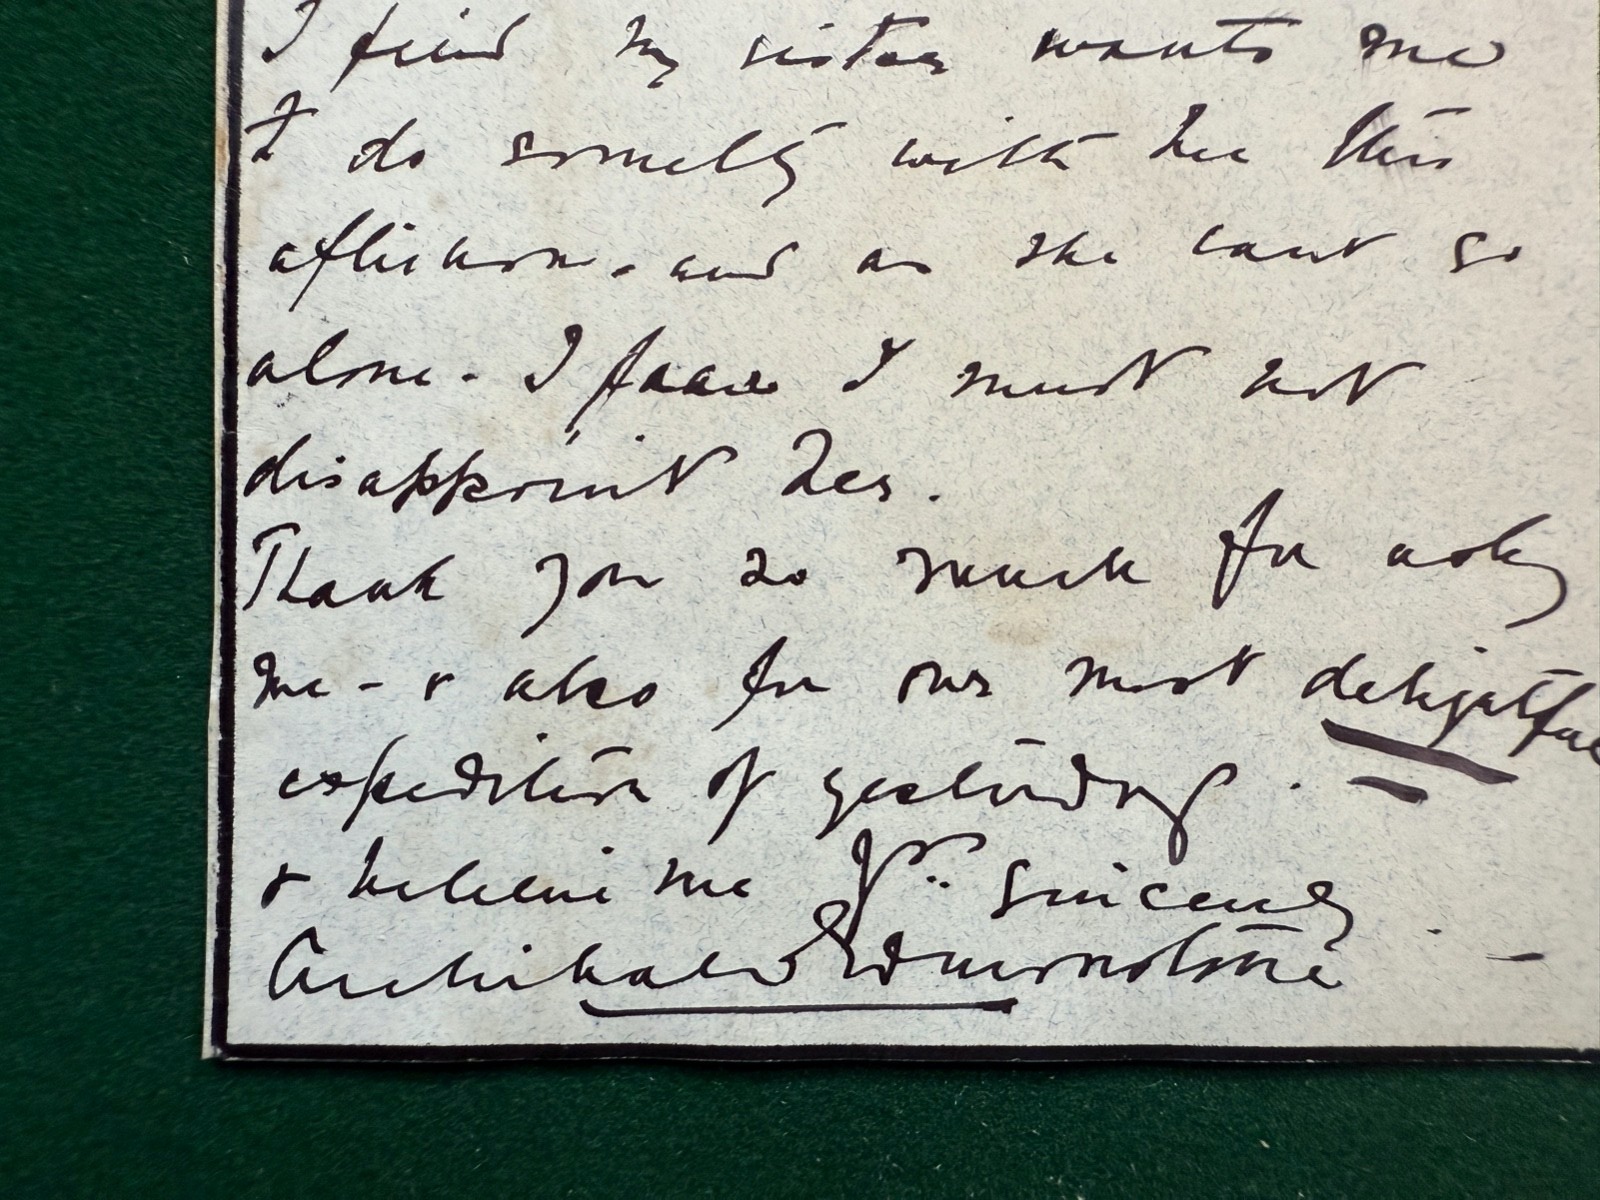 I find my sister wants me
to do somethg with her this
afternoon - and as she cant go
alone - I fear I must not
disappoint her.
Thank you so much for askg
me - & also for our most delightful
expedition of yesterday.
& believe me Yrs. sincerely
Archibald Edmonstone